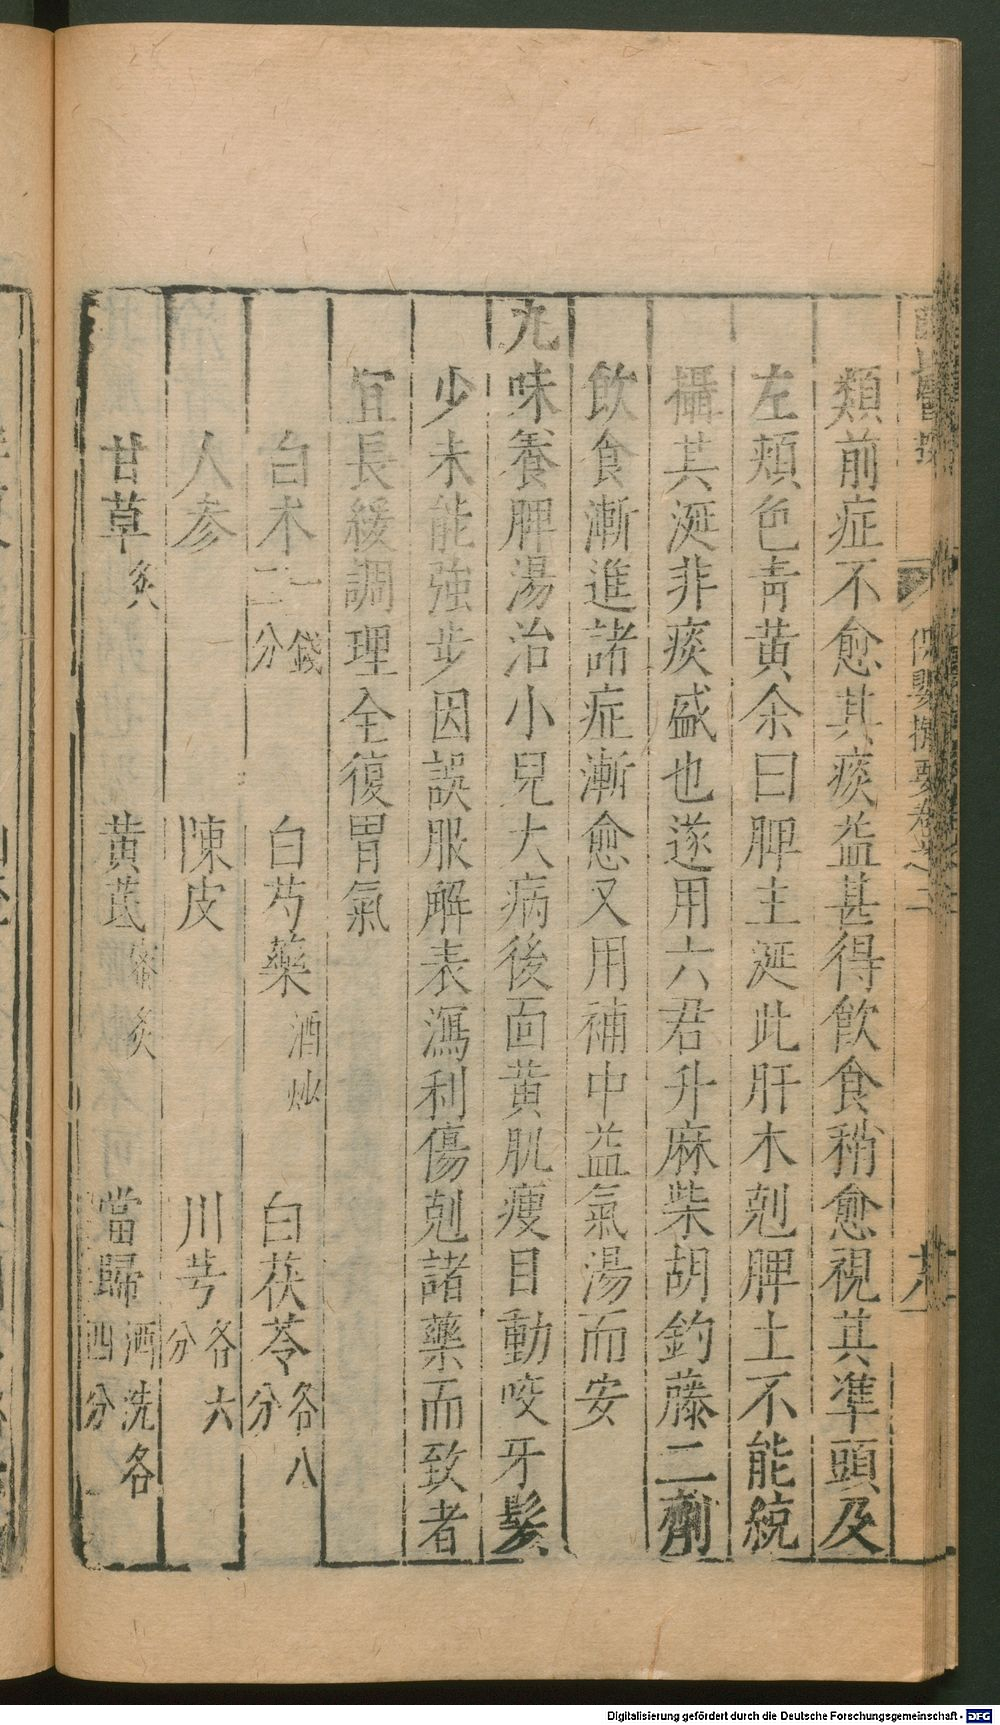 保嬰撮要卷之二
類前症不愈其痰益甚得飲食稍愈視其準頭及
左頰色青黃余曰脾主涎此肝木剋脾土不能統
攝其涎非痰盛也遂用六君升麻柴胡釣藤二劑
飲食漸進諸症漸愈又用補中益氣湯而安
九味養脾湯治小兒大病後面黃肌瘦目動咬牙髮
少未能強步因誤服解表瀉利傷剋諸藥而致者
宜長緩調理全復胃氣
白朮一錢二分 白芍藥酒炒 白茯苓各八分
人參 陳皮 川芎各六分
甘草炙 黃芪蜜炙 當歸酒洗各四分
Digitalisierung gefördert durch die Deutsche Forschungsgemeinschaft - DFG